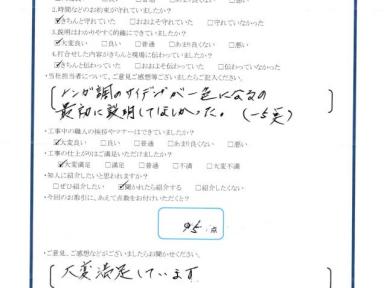 2.時間などのお約束が守れていましたか?
☑きちんと守れていた □おおよそ守れていた □守れていなかった
3.説明はわかりやすく的確にできていましたか?
☑大変良い □良い □普通 □あまり良くない □悪い
4.打合せした内容がきちんと現場に伝わっていましたか?
☑きちんと伝わっていた □おおよそ伝わっていた □伝わっていなかった
・当社担当者について。ご意見ご感想等ございましたらご記入ください。
レンガ調のサイディングが一色になるの
最初に説明してほしかった。(-5点)
・工事中の職人の挨拶やマナーはできていましたか?
☑大変良い □良い □普通 □あまり良くない □悪い
・工事の仕上がりはご満足いただけましたか?
☑大変満足 □満足 □普通 □不満 □大変不満
・知人に紹介したいと思われますか?
□ぜひ紹介したい ☑聞かれたら紹介する □紹介したくない
・今回のお取引に、あえて点数をお付けいただくと?
95点
・ご意見、ご感想などがございましたらお聞かせください。
大変満足しています